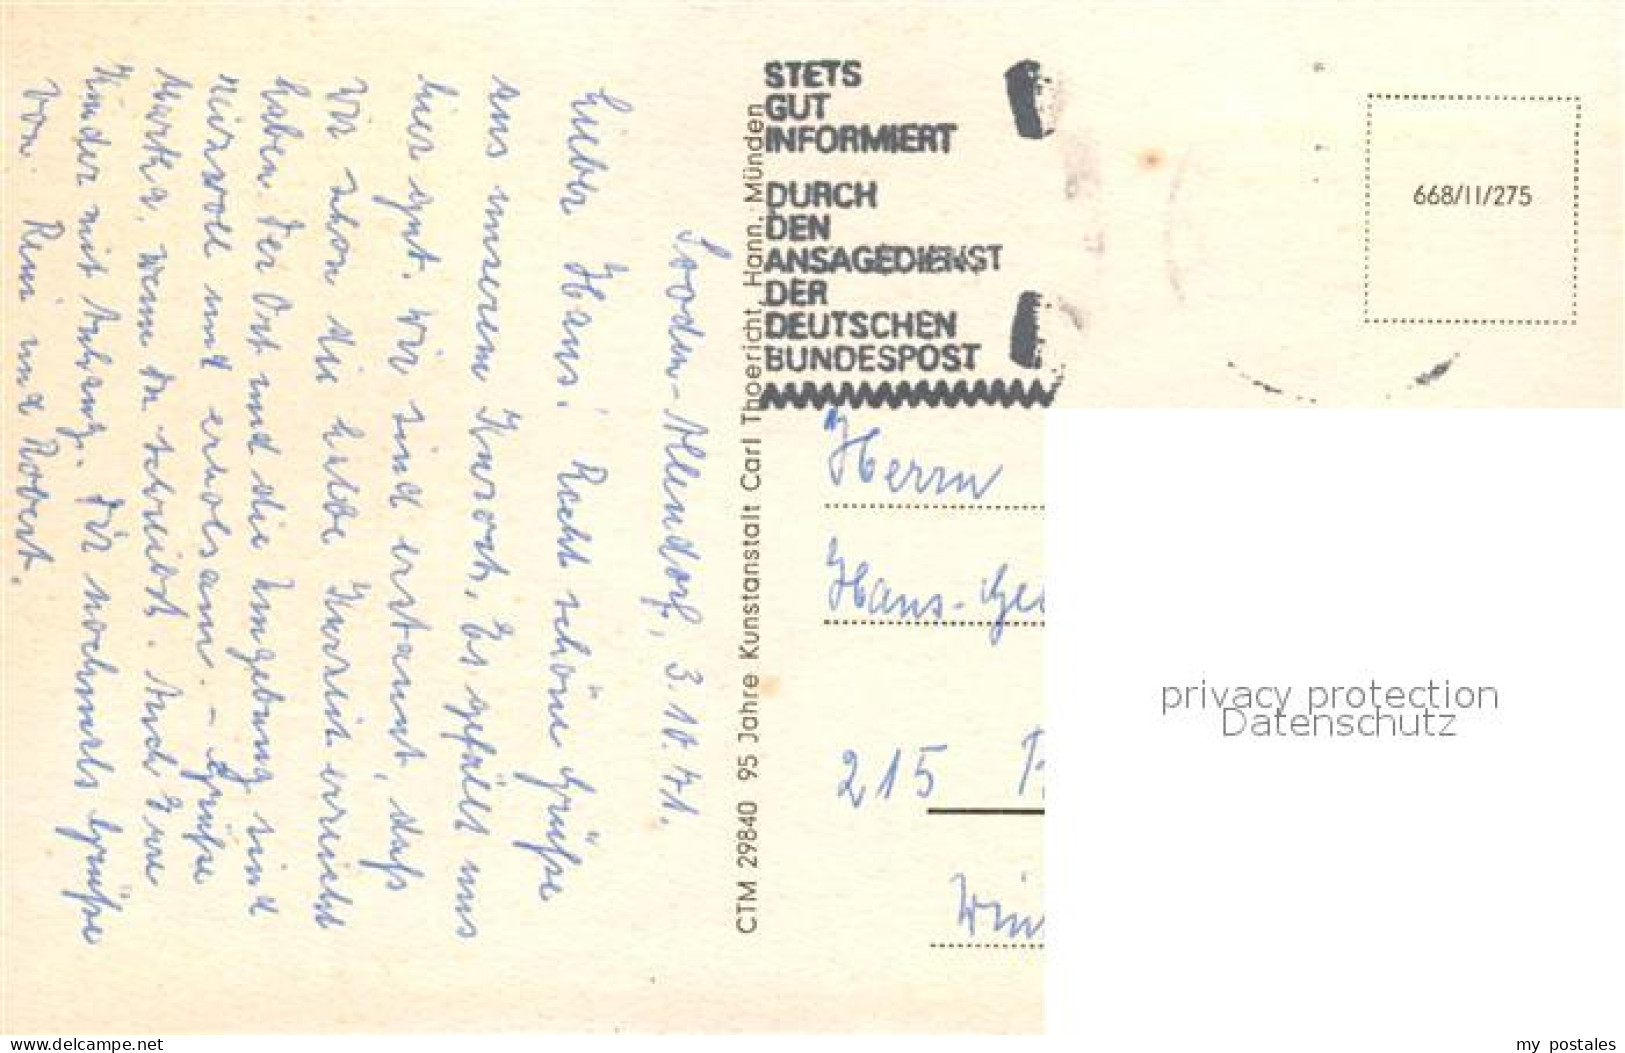 Sooden-Allendorf, 3.10.71.
Lieber Hans! Recht schöne Grüße
aus unserem Kurort. Es gefällt uns
hier gut. Wir sind erstaunt, daß
wir schon die halbe Kurzeit erreicht
haben. Der Ort und die Umgebung sind
reizvoll und erholsam. – Grüße
Marka, wenn Du schreibst. Auch Eure
Kinder mit Anhang. Dir nochmals Grüße
von: Remi und Robert.
CTM 29840 95 Jahre Kunstanstalt Carl Thoericht, Hann. Münden
STETS
GUT
INFORMIERT
DURCH
DEN
ANSAGEDIENST
DER
DEUTSCHEN
BUNDESPOST
668/II/275
Herrn
Hans-Ge
215
Win
privacy protection
Datenschutz
delcampe.net
my_postales